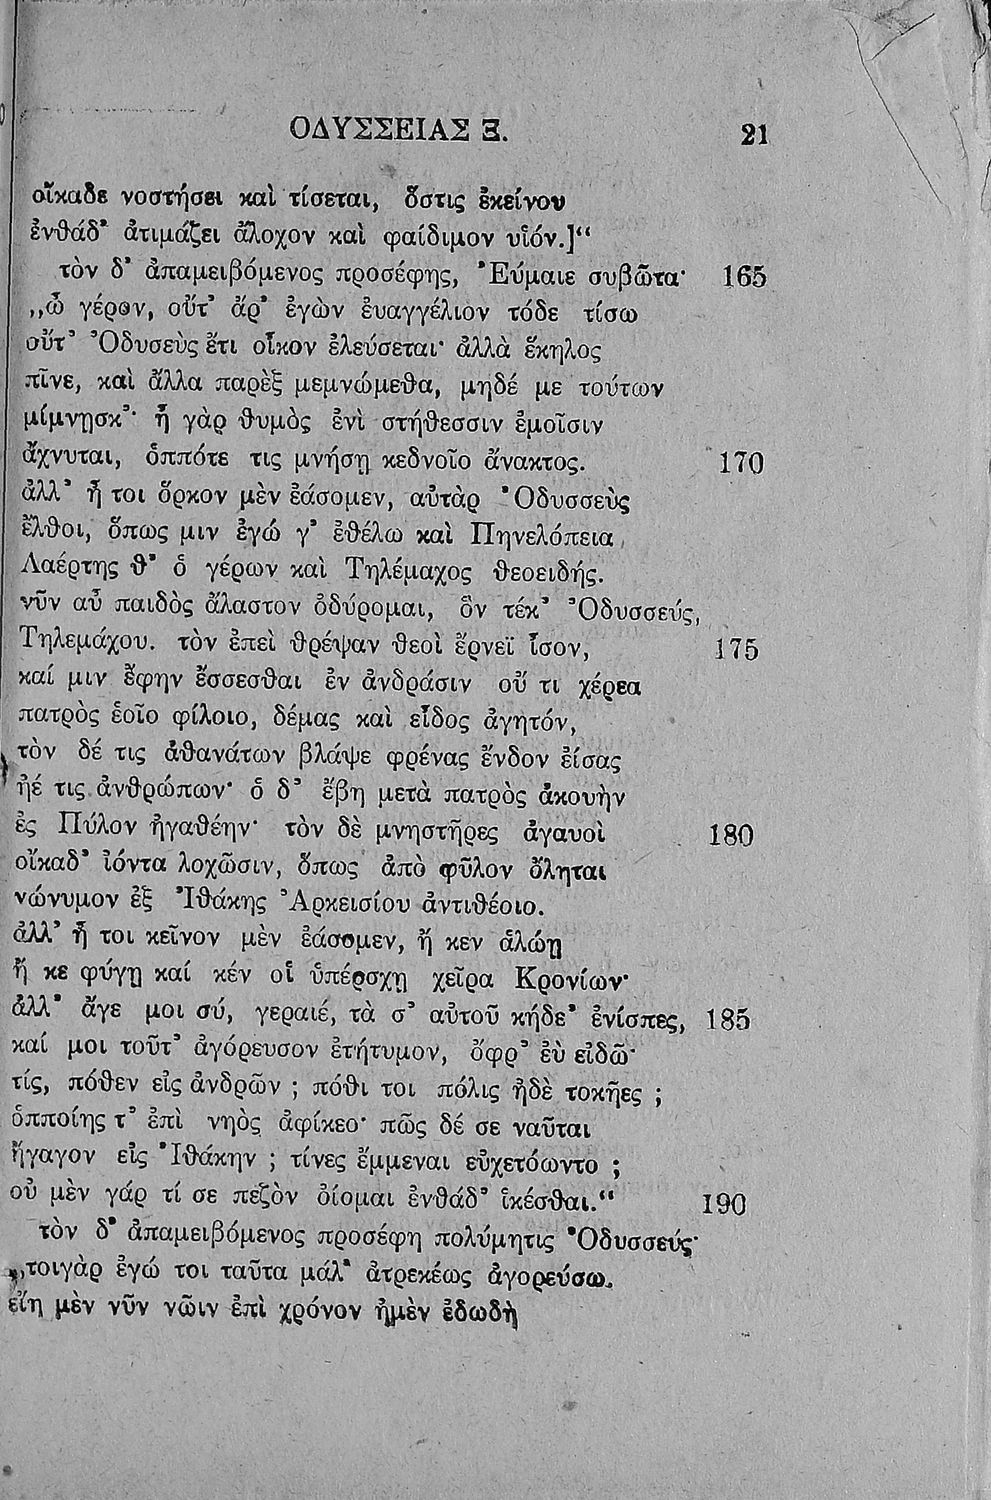 ΟΔΥΣΣΕΙΑΣ Ξ. 21
οἴκαδε νοστήσει καὶ τίσεται, ὅστις ἐκείνου
ἐνθάδ’ ἀτιμάζει ἄλοχον καὶ φαίδιμον υἱόν.]“
τὸν δ’ ἀπαμειβόμενος προσέφης, Ἐύμαιε συβῶτα· 165
„ὦ γέρον, οὔτ’ ἄρ’ ἐγὼν ἐυαγγέλιον τόδε τίσω
οὔτ’ Ὀδυσεὺς ἔτι οἶκον ἐλεύσεται· ἀλλὰ ἕκηλος
πῖνε, καὶ ἄλλα παρὲξ μεμνώμεθα, μηδέ με τούτων
μίμνησκ’· ἦ γὰρ θυμὸς ἐνὶ στήθεσσιν ἐμοῖσιν
ἄχνυται, ὁππότε τις μνήσῃ κεδνοῖο ἄνακτος. 170
ἀλλ’ ἦ τοι ὅρκον μὲν ἐάσομεν, αὐτὰρ Ὀδυσσεὺς
ἔλθοι, ὅπως μιν ἐγώ γ’ ἐθέλω καὶ Πηνελόπεια
Λαέρτης θ’ ὁ γέρων καὶ Τηλέμαχος θεοειδής.
νῦν αὖ παιδὸς ἄλαστον ὀδύρομαι, ὃν τέκ’ Ὀδυσσεύς,
Τηλεμάχου. τὸν ἐπεὶ θρέψαν θεοὶ ἔρνεϊ ἶσον, 175
καί μιν ἔφην ἔσσεσθαι ἐν ἀνδράσιν οὔ τι χέρεα
πατρὸς ἑοῖο φίλοιο, δέμας καὶ εἶδος ἀγητόν,
τὸν δέ τις ἀθανάτων βλάψε φρένας ἔνδον ἐίσας
ἠέ τις ἀνθρώπων· ὁ δ’ ἔβη μετὰ πατρὸς ἀκουὴν
ἐς Πύλον ἠγαθέην· τὸν δὲ μνηστῆρες ἀγαυοὶ 180
οἴκαδ’ ἰόντα λοχῶσιν, ὅπως ἀπὸ φῦλον ὄληται
νώνυμον ἐξ Ἰθάκης Ἀρκεισίου ἀντιθέοιο.
ἀλλ’ ἦ τοι κεῖνον μὲν ἐάσομεν, ἤ κεν ἁλώῃ
ἤ κε φύγῃ καί κέν οἱ ὑπέρσχῃ χεῖρα Κρονίων·
ἀλλ’ ἄγε μοι σύ, γεραιέ, τὰ σ’ αὐτοῦ κήδε’ ἐνίσπες, 185
καί μοι τοῦτ’ ἀγόρευσον ἐτήτυμον, ὄφρ’ ἐὺ εἰδῶ·
τίς, πόθεν εἰς ἀνδρῶν ; πόθι τοι πόλις ἠδὲ τοκῆες ;
ὁπποίης τ’ ἐπὶ νηὸς ἀφίκεο· πῶς δέ σε ναῦται
ἤγαγον εἰς Ἰθάκην ; τίνες ἔμμεναι εὐχετόωντο ;
οὐ μὲν γάρ τί σε πεζὸν ὀίομαι ἐνθάδ’ ἱκέσθαι.“ 190
τὸν δ’ ἀπαμειβόμενος προσέφη πολύμητις Ὀδυσσεύς·
„τοιγὰρ ἐγώ τοι ταῦτα μάλ’ ἀτρεκέως ἀγορεύσω.
εἴη μὲν νῦν νῶιν ἐπὶ χρόνον ἠμὲν ἐδωδὴ